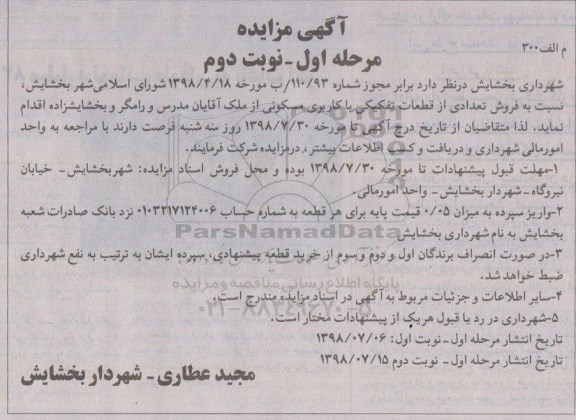 آگهی مزایده
مرحله اول - نوبت دوم
م الف ۳۰۰
شهرداری بخشایش درنظر دارد برابر مجوز شماره ۱۱۰/۹۳/ب مورخه ۱۳۹۸/۴/۱۸ شورای اسلامی‌شهر بخشایش،
نسبت به فروش تعدادی از قطعات تفکیکی با کاربری مسکونی از ملک آقایان مدرس و رامگر و بخشایشزاده اقدام
نماید. لذا متقاضیان از تاریخ درج آگهی تا مورخه ۱۳۹۸/۷/۳۰ روز سه شنبه فرصت دارند با مراجعه به واحد
امورمالی شهرداری و دریافت و کسب اطلاعات بیشتر، درمزایده شرکت فرمایند.
۱-مهلت قبول پیشنهادات تا مورخه ۱۳۹۸/۷/۳۰ بوده و محل فروش اسناد مزایده: شهربخشایش- خیابان
نیروگاه-شهردار بخشایش- واحد امورمالی.
۲-واریز سپرده به میزان ۰/۰۵ قیمت پایه برای هر قطعه به شماره حساب ۰۱۰۳۲۱۷۱۲۴۰۰۶ نزد بانک صادرات شعبه
بخشایش به نام شهرداری بخشایش
۳-در صورت انصراف برندگان اول و دوم و سوم از خرید قطعه پیشنهادی، سپرده ایشان به ترتیب به نفع شهرداری
ضبط خواهد شد.
۴-سایر اطلاعات و جزئیات مربوط به آگهی در اسناد مزایده مندرج است.
۵-شهرداری در رد یا قبول هریک از پیشنهادات مختار است.
تاریخ انتشار مرحله اول-نوبت اول: ۱۳۹۸/۰۷/۰۶
تاریخ انتشار مرحله اول- نوبت دوم ۱۳۹۸/۰۷/۱۵
مجید عطاری - شهردار بخشایش
ParsNamadData
پایگاه اطلاع رسانی مناقصه و مزایده